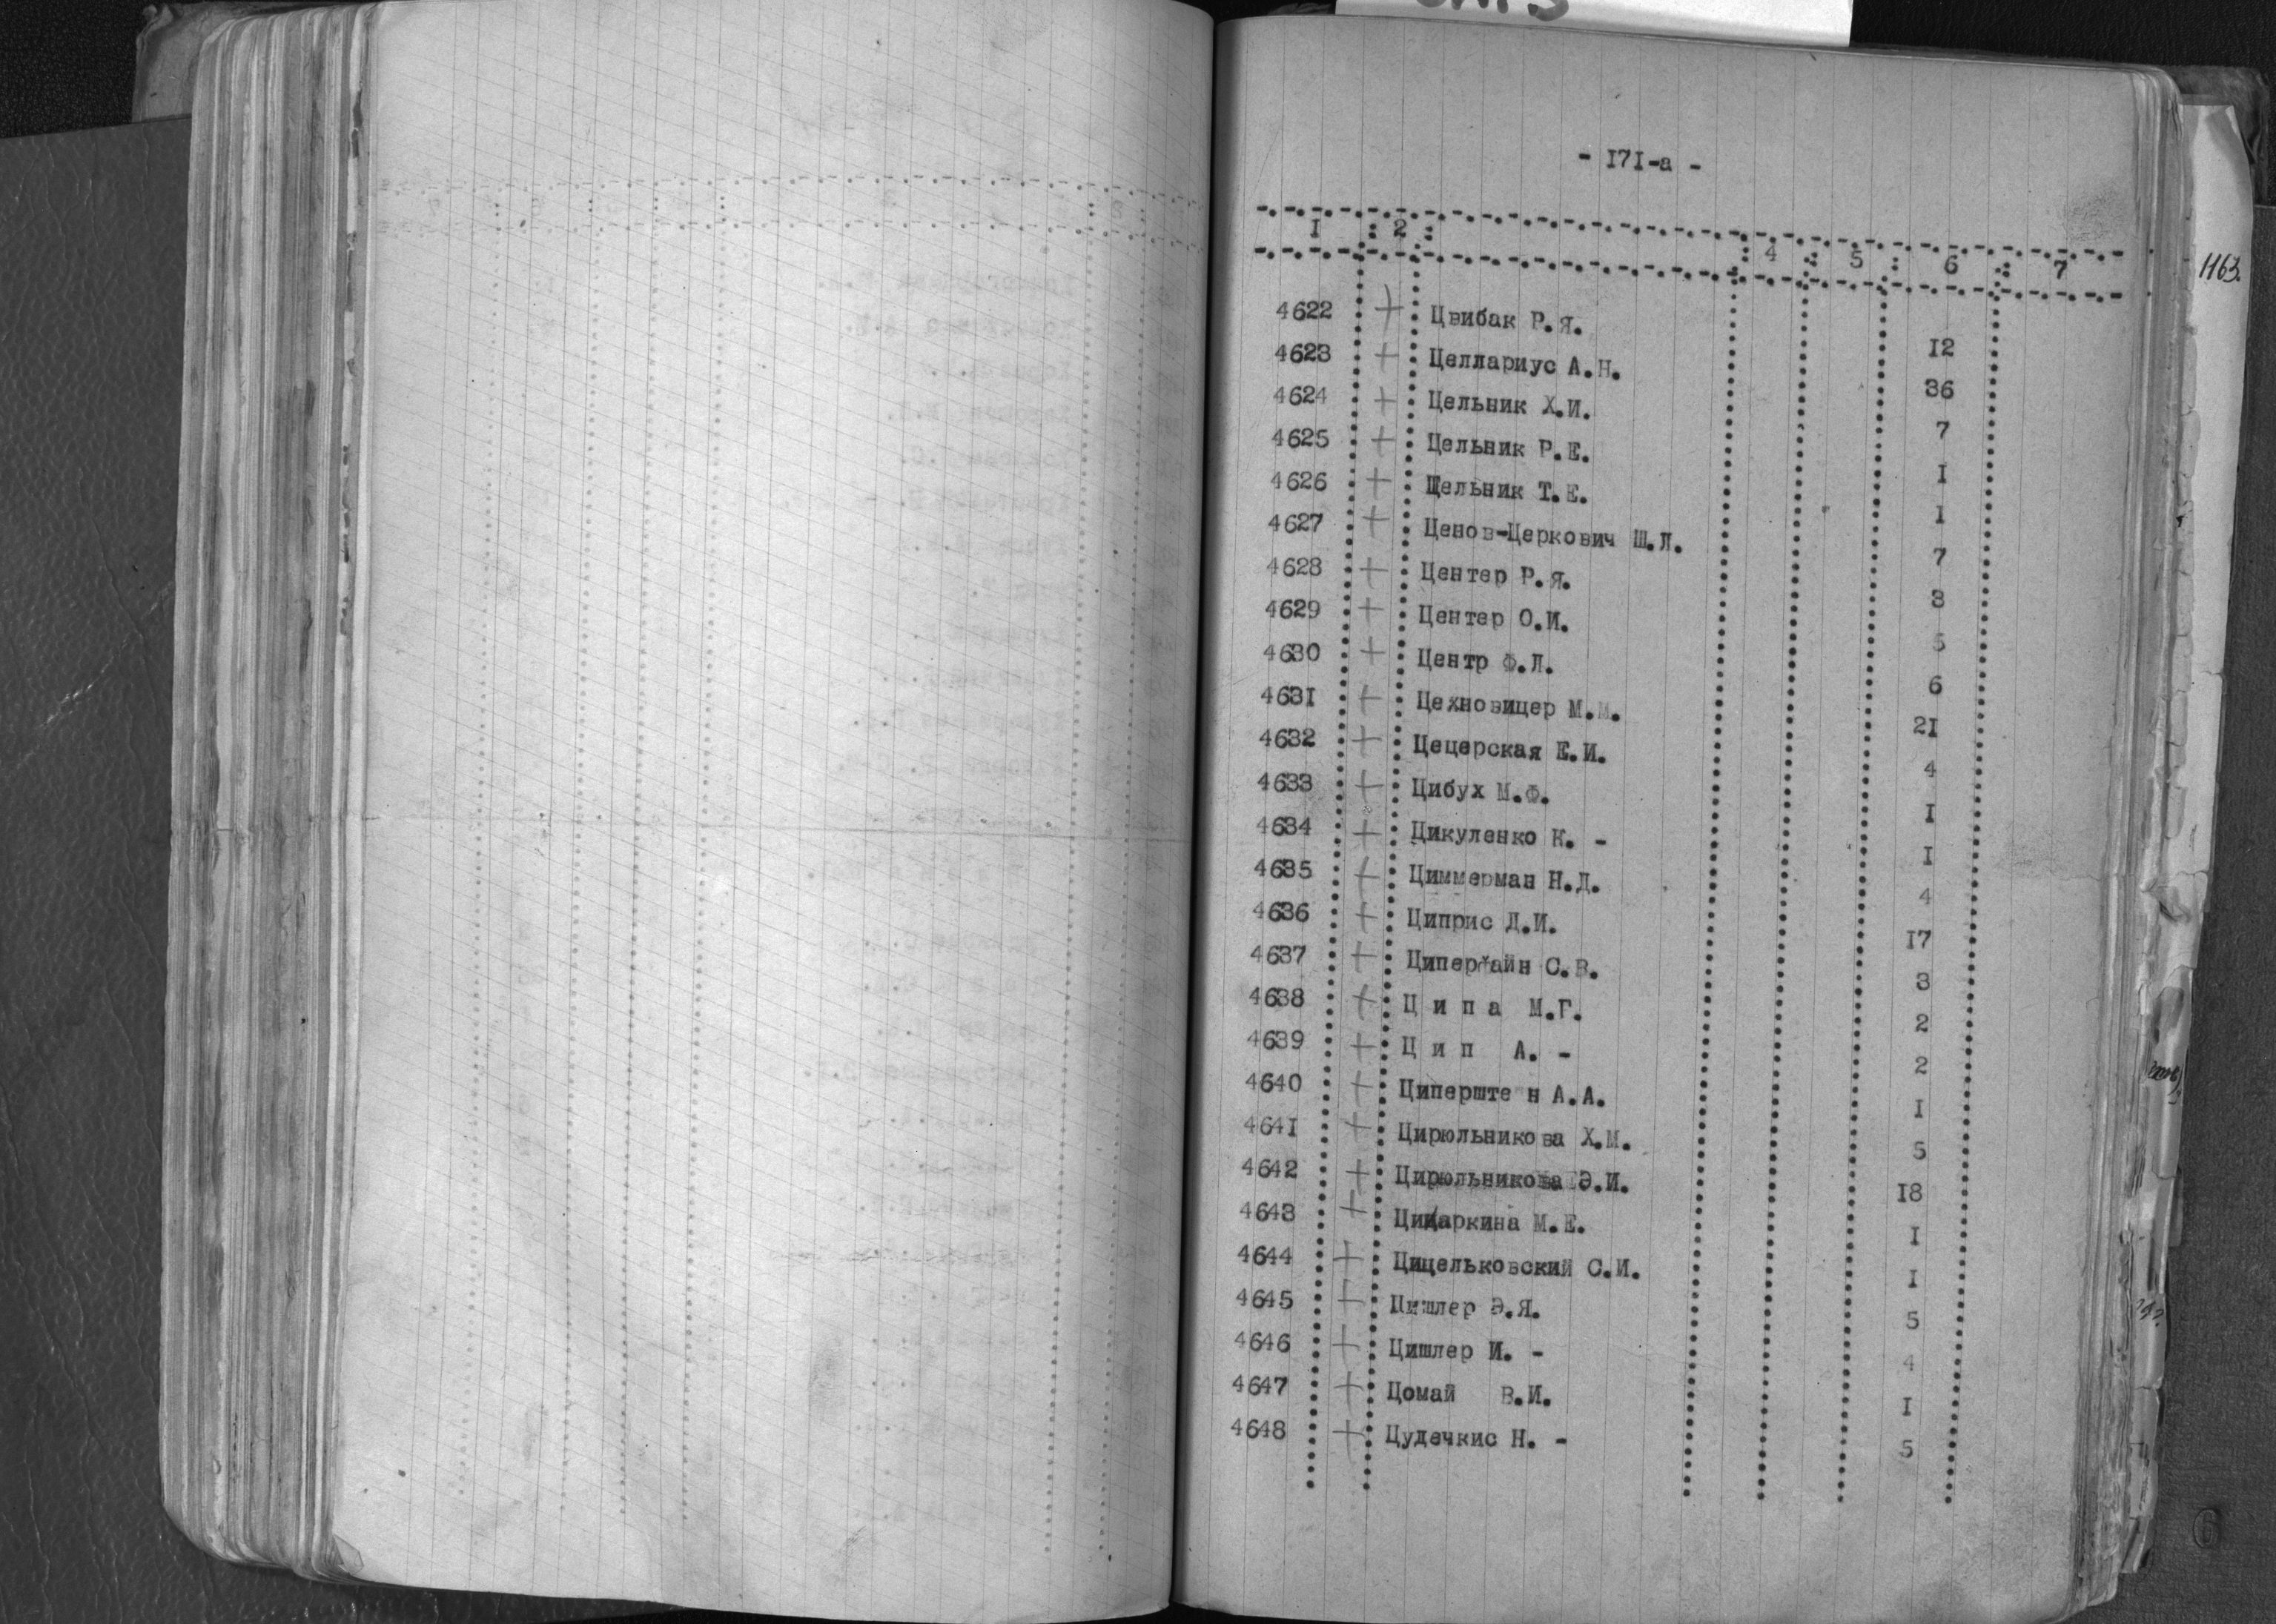 - I7I-а -
I : 2 : 4 : 5 : 6 : 7
1163.
4622 + Цвибак Р.Я. I2
4623 + Целлариус А.Н. 36
4624 + Цельник Х.И. 7
4625 + Цельник Р.Е. I
4626 + Цельник Т.Е. I
4627 + Ценов-Церкович Ш.Л. 7
4628 + Центер Р.Я. 3
4629 + Центер О.И. 5
4630 + Центр Ф.Л. 6
4631 + Цехновицер М.М. 2I
4632 + Цецерская Е.И. 4
4633 + Цибух М.Ф. I
4634 + Цикуленко К. - I
4635 + Циммерман Н.Д. 4
4636 + Циприс Д.И. I7
4637 + С.В. 3
4638 + Ц и п а М.Г. 2
4639 + Ц и п А. - 2
4640 + Циперште н А.А. I
464I + Цирюльникова Х.М. 5
4642 + Цирюльникова Э.И. I8
4643 + Цицаркина М.Е. I
4644 + Цицельковский С.И. I
4645 + Цишлер Э.Я. 5
4646 + Цишлер И. - 4
4647 + Цомай В.И. I
4648 + Цудечкис Н. - 5
6